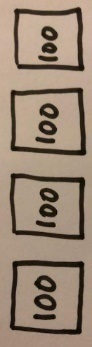 100
100
100
100